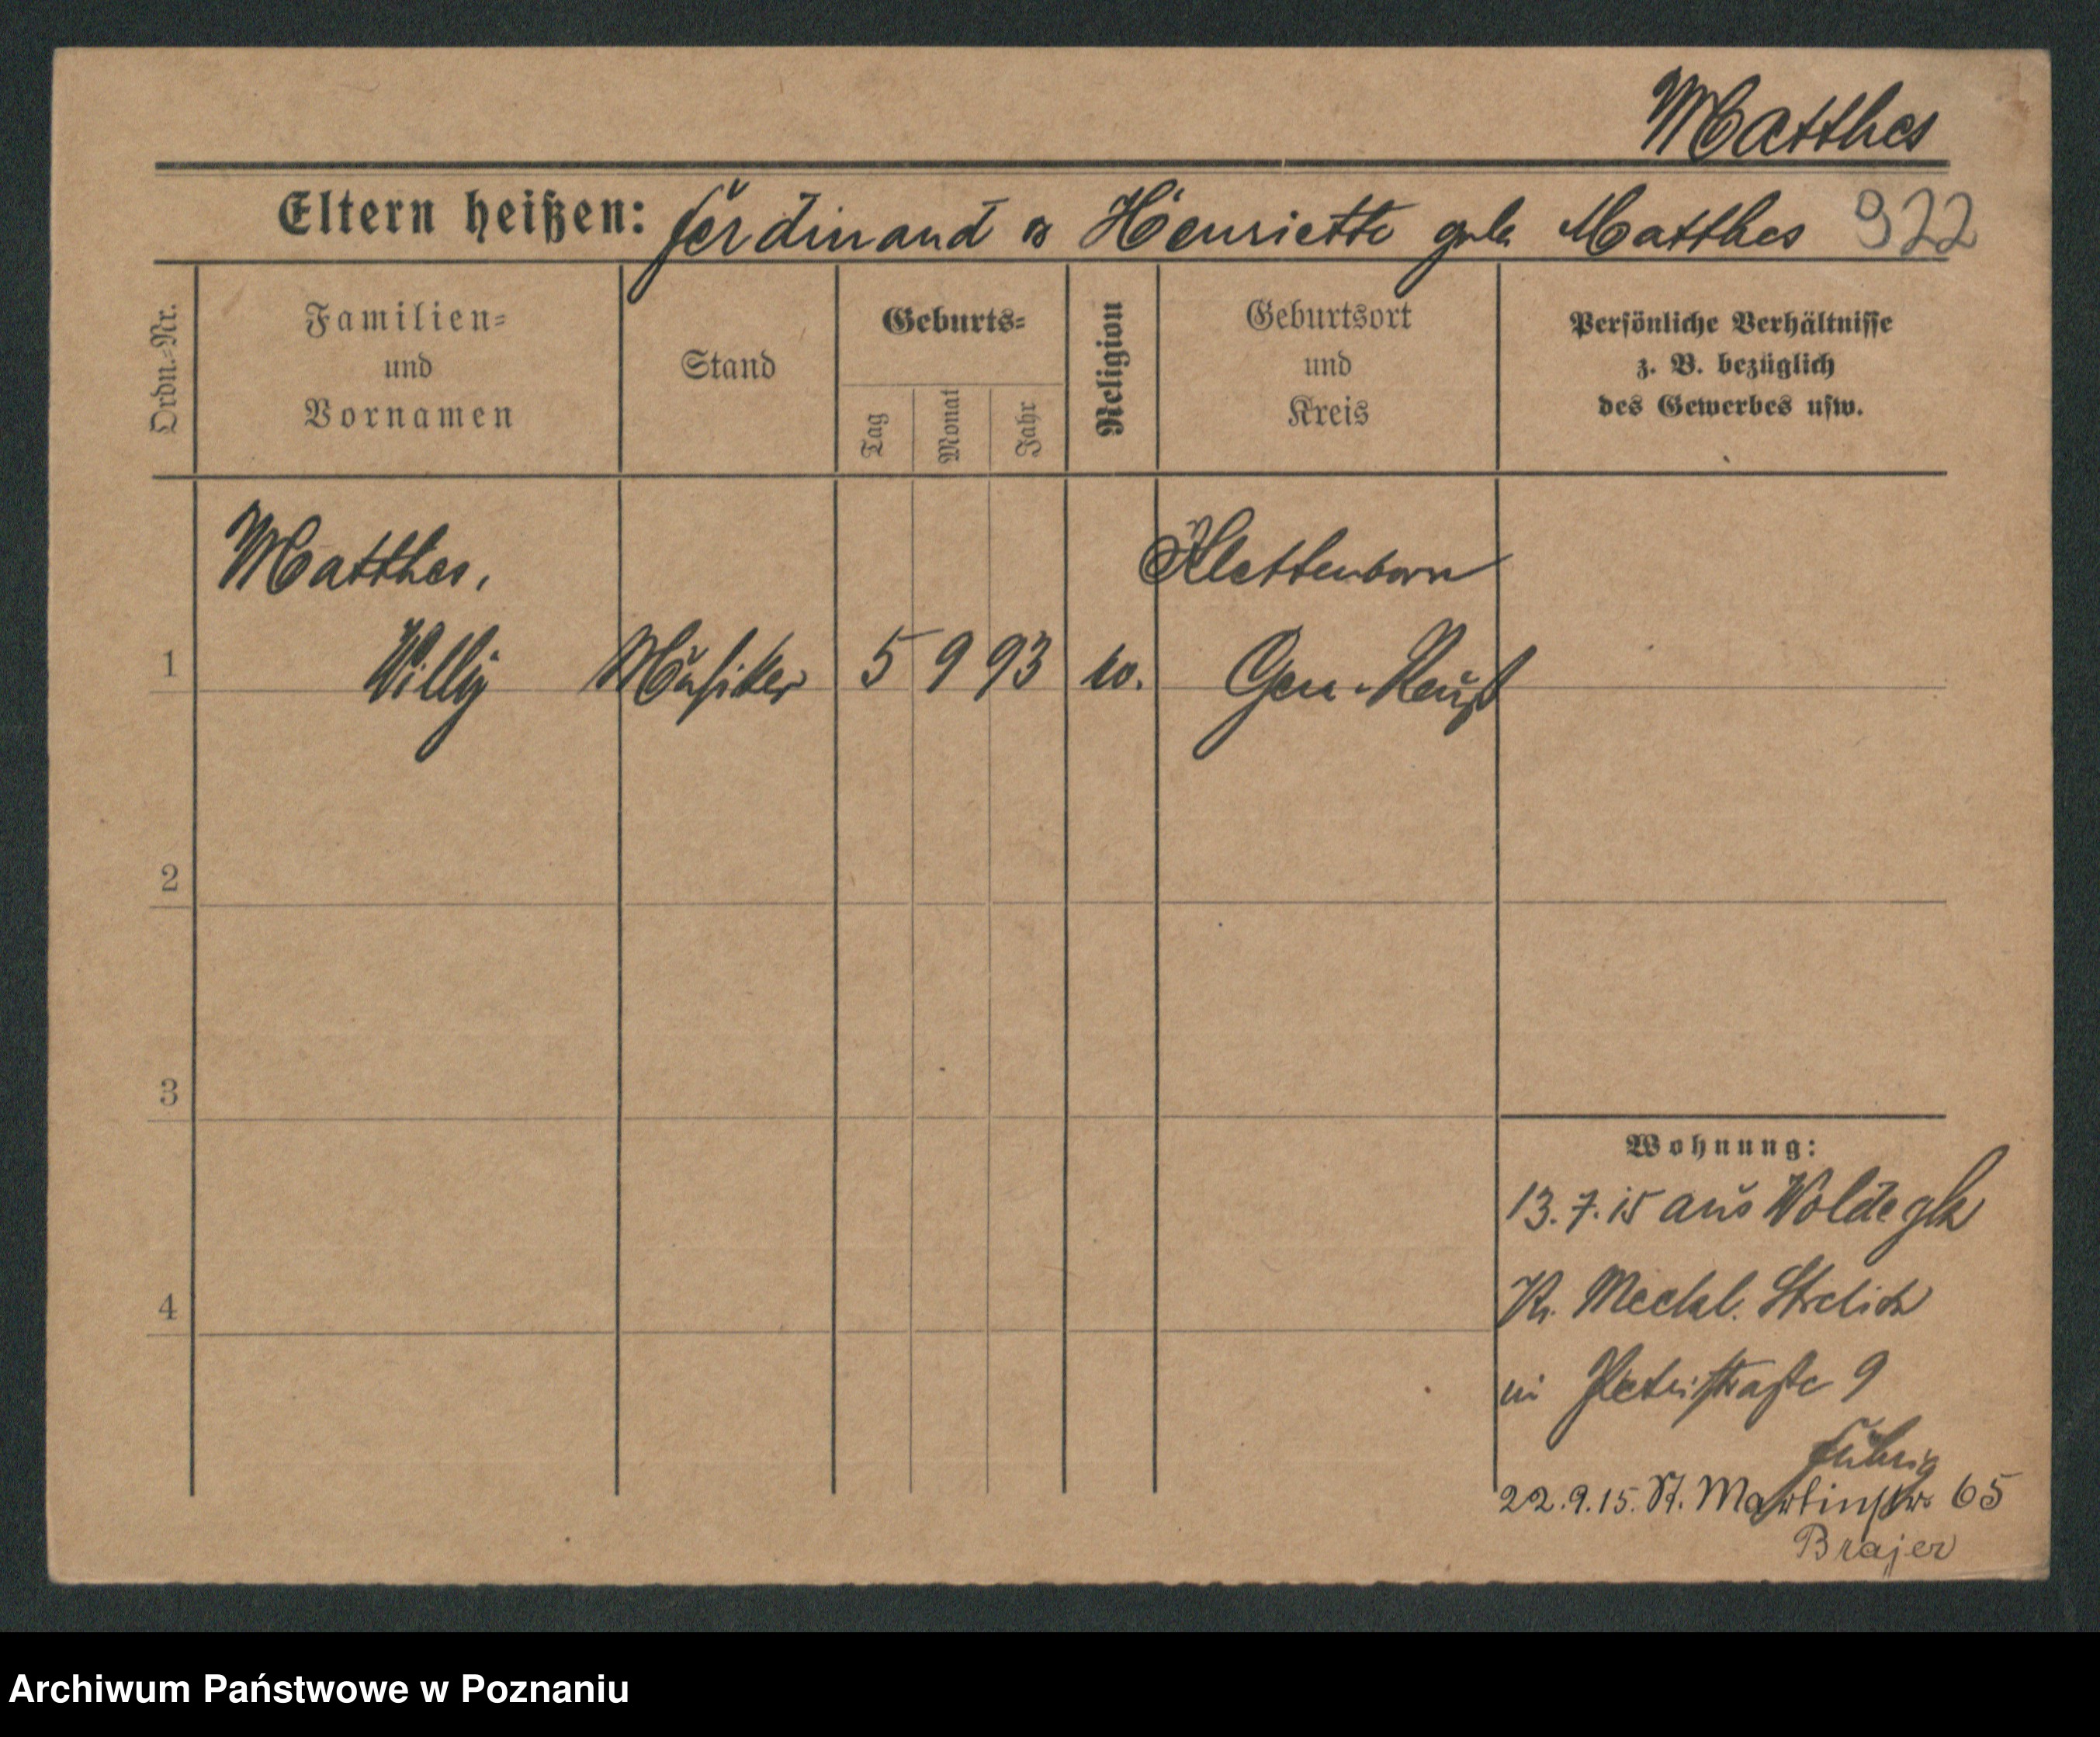 Matthes
Eltern heißen: Ferdinand & Henriette geb. Matthes 922
Ordn.-Nr.
Familien-
und
Vornamen
Stand
Geburts-
Tag
Monat
Jahr
Religion
Geburtsort
und
Kreis
Persönliche Verhältnisse
z. B. bezüglich
des Gewerbes usw.
Matthes,
Klettenborn
1 Willy Musiker 5 9 93 Reuß
2
3
4
Wohnung:
13.7.15 aus Woldegk
Kr. Meckl. Strelitz
in Petristraße 9
Führig
22.9.15. St. Martinstr. 65
Brajer
Archiwum Państwowe w Poznaniu